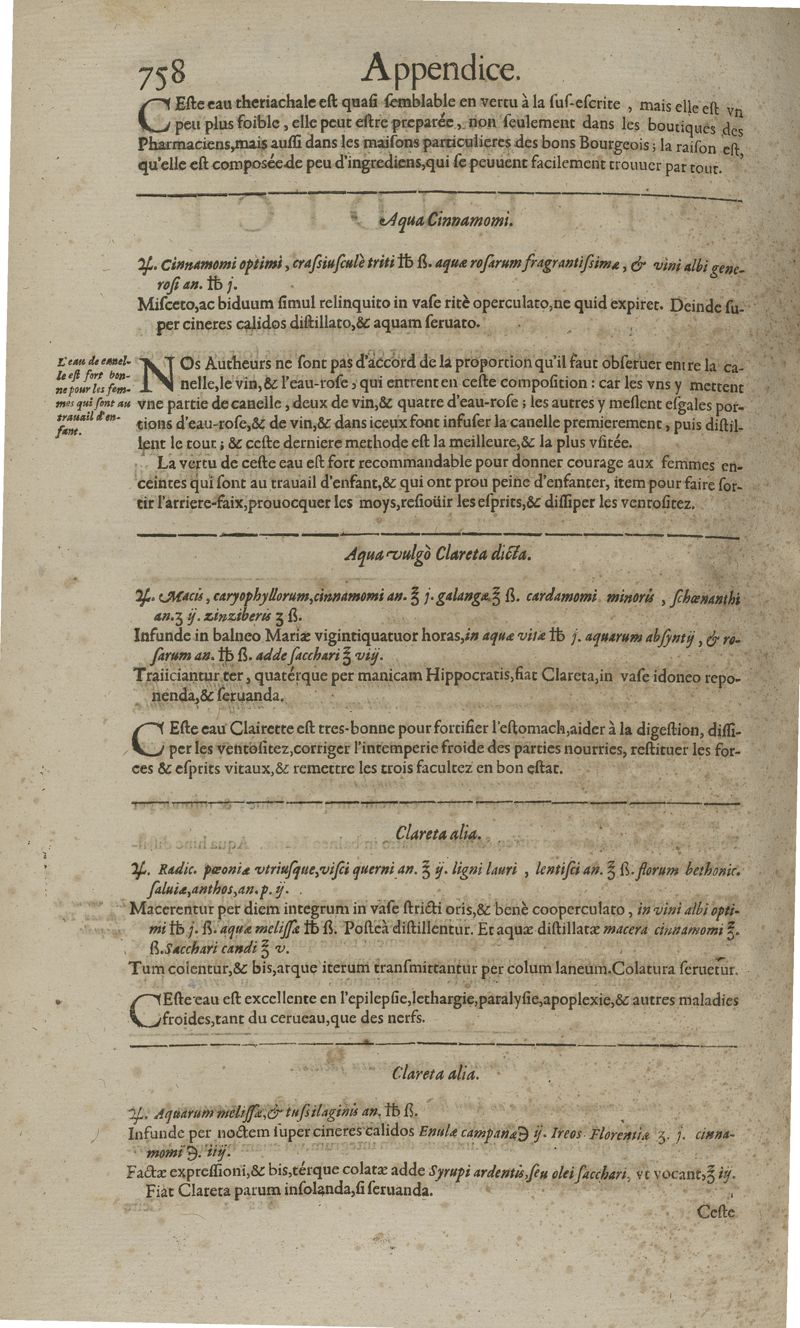 758 Appendice.
CEſte eau theriachale eſt quaſi ſemblable en vertu à la ſuſ-eſcrite , mais elle eſt vn
peu plus foible, elle peut eſtre preparée, non ſeulement dans les boutiques des
Pharmaciens,mais auſſi dans les maiſons particulieres des bons Bourgeois; la raiſon eſt,
qu'elle eſt composée de peu d'ingrediens,qui ſe peuuent facilement trouuer par tout.
Aqua Cinnamomi.
℞. Cinnamomi optimi, craſsiuſculè triti ℔ ß. aquæ roſarum fragrantiſsimæ, & vini albi gene-
roſi an. ℔ j.
Miſceto,ac biduum ſimul relinquito in vaſe ritè operculato,ne quid expiret. Deinde ſu-
per cineres calidos diſtillato,& aquam ſeruato.
L'eau de canel-
le eſt fort bon-
ne pour les fem-
mes qui ſont au
trauail d'en-
fant.
NOs Autheurs ne ſont pas d'accord de la proportion qu'il faut obſeruer entre la ca-
nelle,le vin,& l'eau-roſe, qui entrent en ceſte compoſition : car les vns y mettent
vne partie de canelle, deux de vin,& quatre d'eau-roſe ; les autres y meſlent eſgales por-
tions d'eau-roſe,& de vin,& dans iceux font infuſer la canelle premierement, puis diſtil-
lent le tout ; & ceſte derniere methode eſt la meilleure,& la plus vſitée.
La vertu de ceſte eau eſt fort recommandable pour donner courage aux femmes en-
ceintes qui ſont au trauail d'enfant,& qui ont prou peine d'enfanter, item pour faire ſor-
tir l'arriere-faix,prouocquer les moys,reſioüir les eſprits,& diſſiper les ventoſitez.
Aqua vulgò Clareta dicta.
℞. Macis, caryophyllorum,cinnamomi an. ℥ j. galangæ ℥ ß. cardamomi minoris , ſchœnanthi
an.ʒ ij. zinziberis ʒ ß.
Infunde in balneo Mariæ vigintiquatuor horas,in aquæ vitæ ℔ j. aquarum abſyntij, & ro-
ſarum an. ℔ ß. adde ſacchari ℥ viij.
Traiiciantur ter, quatérque per manicam Hippocratis,fiat Clareta,in vaſe idoneo repo-
nenda,& ſeruanda.
CEſte eau Clairette eſt tres-bonne pour fortifier l'eſtomach,aider à la digeſtion, diſſi-
per les ventoſitez,corriger l'intemperie froide des parties nourries, reſtituer les for-
ces & eſprits vitaux,& remettre les trois facultez en bon eſtat.
Clareta alia.
℞. Radic. pœoniæ vtriuſque,viſci querni an. ℥ ij. ligni lauri , lentiſci an. ℥ ß. florum bethonic.
ſaluiæ,anthos,an.p. ij.
Macerentur per diem integrum in vaſe ſtricti oris,& benè cooperculato, in vini albi opti-
mi ℔ j. ß. aquæ meliſſæ ℔ ß. Poſteà diſtillentur. Et aquæ diſtillatæ macera cinnamomi ℥.
ß. Sacchari candi ℥ v.
Tum colentur,& bis,atque iterum tranſmittantur per colum laneum.Colatura ſeruetur.
CEſte eau eſt excellente en l'epilepſie,lethargie,paralyſie,apoplexie,& autres maladies
froides,tant du cerueau,que des nerfs.
Clareta alia.
℞. Aquarum meliſſæ,& tuſsilaginis an. ℔ ß.
Infunde per noctem ſuper cineres calidos Enulæ campanæ ℈ ij. Ireos Florentiæ ʒ. j. cinna-
momi ℈. iiij.
Factæ expreſſioni,& bis,térque colatæ adde Syrupi ardentis,ſeu olei ſacchari, vt vocant,℥ iij.
Fiat Clareta parum inſolanda,ſi ſeruanda.
Ceſte